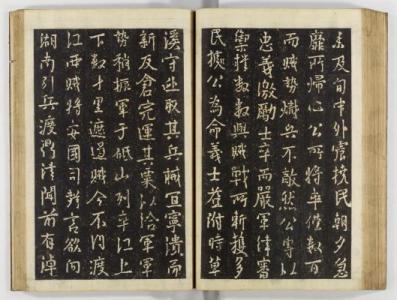 未及旬中外震擾民朝夕急
靡所歸心公所將卒僅數百
而賊勢熾兵不敵然公專以
忠義激勵士卒而嚴軍律審
禦捍數數與賊戰所斬獲多
民獲公為命義士益附時草
溪守逃取其兵械宜寧潰而
新反倉完運其粟以洽軍軍
勢稍振軍于砥山列寨江上
下數十里遮遏賊令不得渡
江西賊將安國司聲言欲向
湖南引兵渡津聞前有